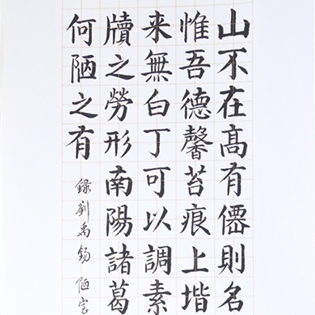 山不在高有僊則名
惟吾德馨苔痕上堦
来無白丁可以調素
牘之勞形南陽諸葛
何陋之有
錄劉禹錫陋室